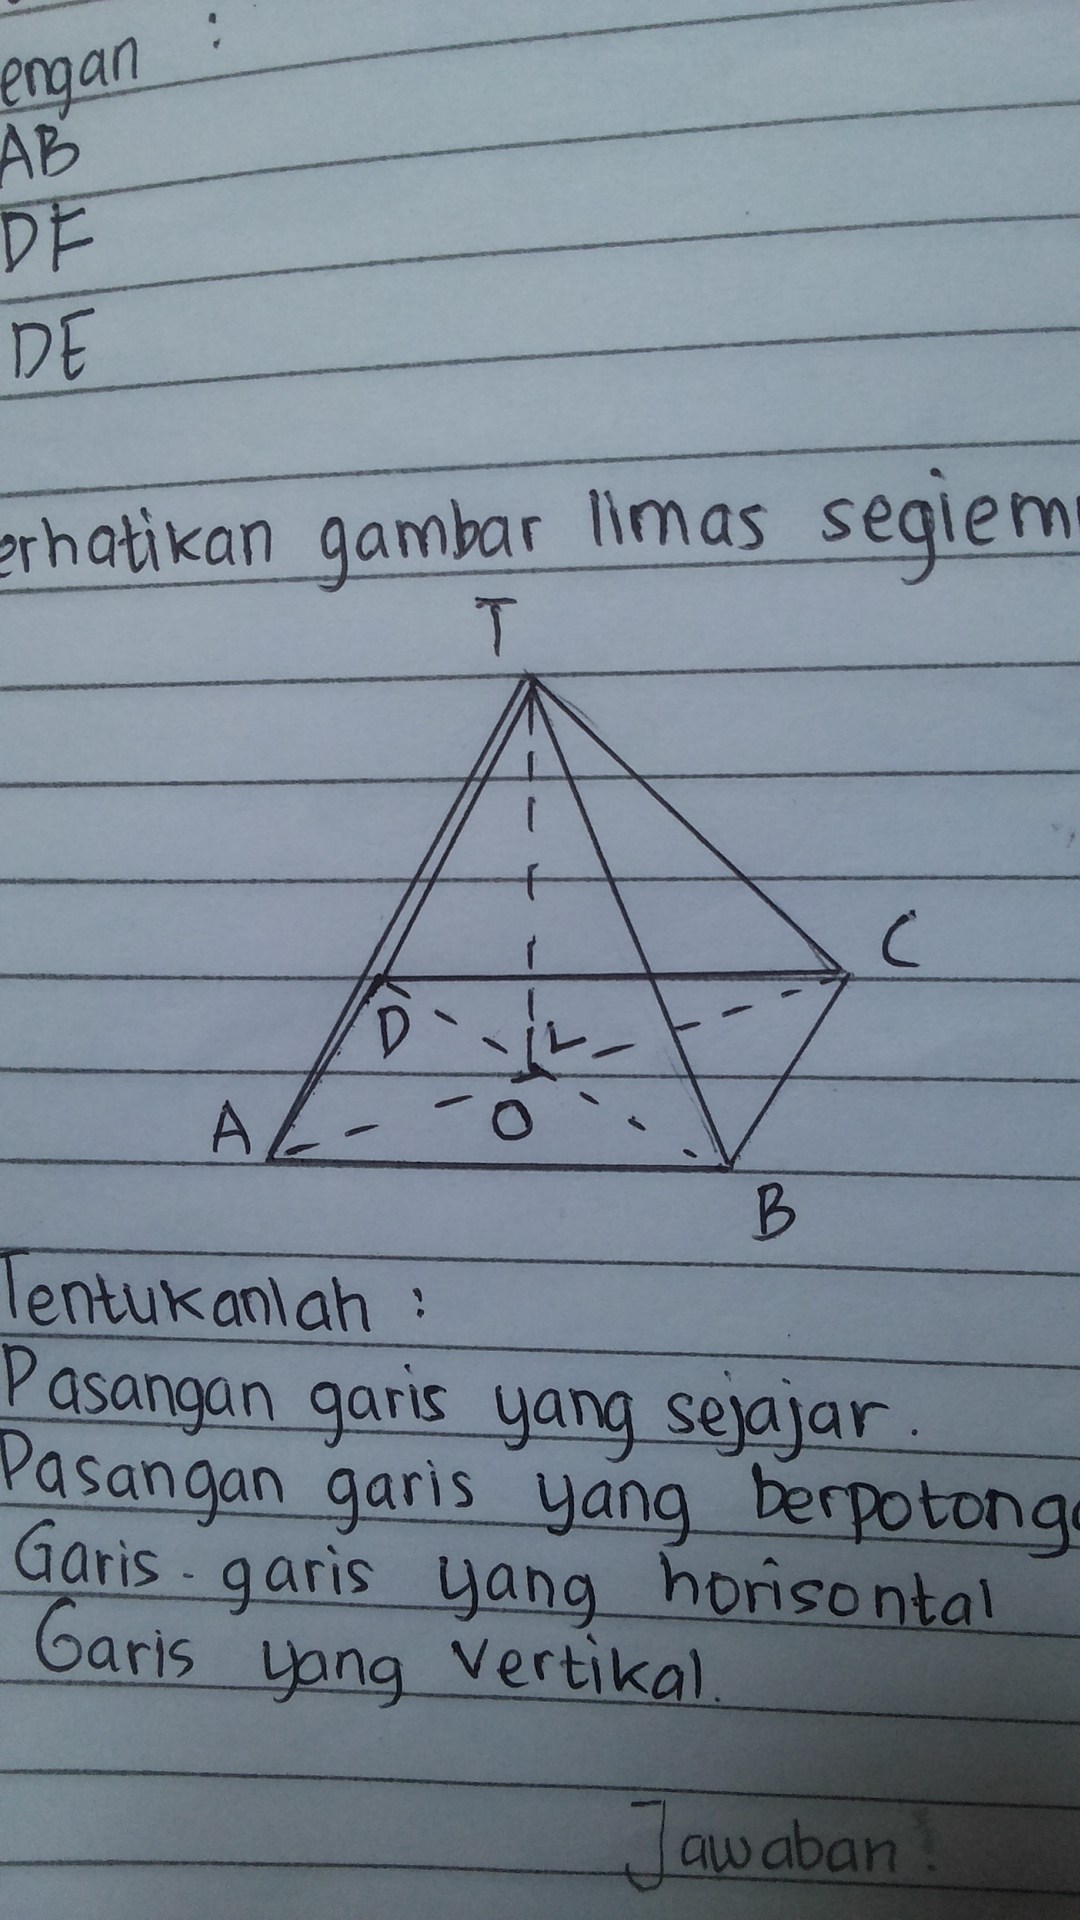 engan :
AB
DF
DE
erhatikan gambar limas segiem
T
C
D
A
O
B
Tentukanlah :
Pasangan garis yang sejajar.
Pasangan garis yang berpotong
Garis-garis yang horisontal
Garis yang vertikal.
Jawaban!